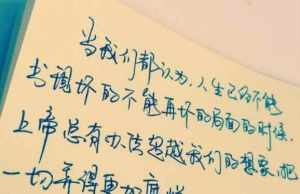 当我们都认为,人生已经不能
当调坏的不能再坏的局面的时候,
上帝总有办法超越我们的想象,把
一切弄得更加糜烂